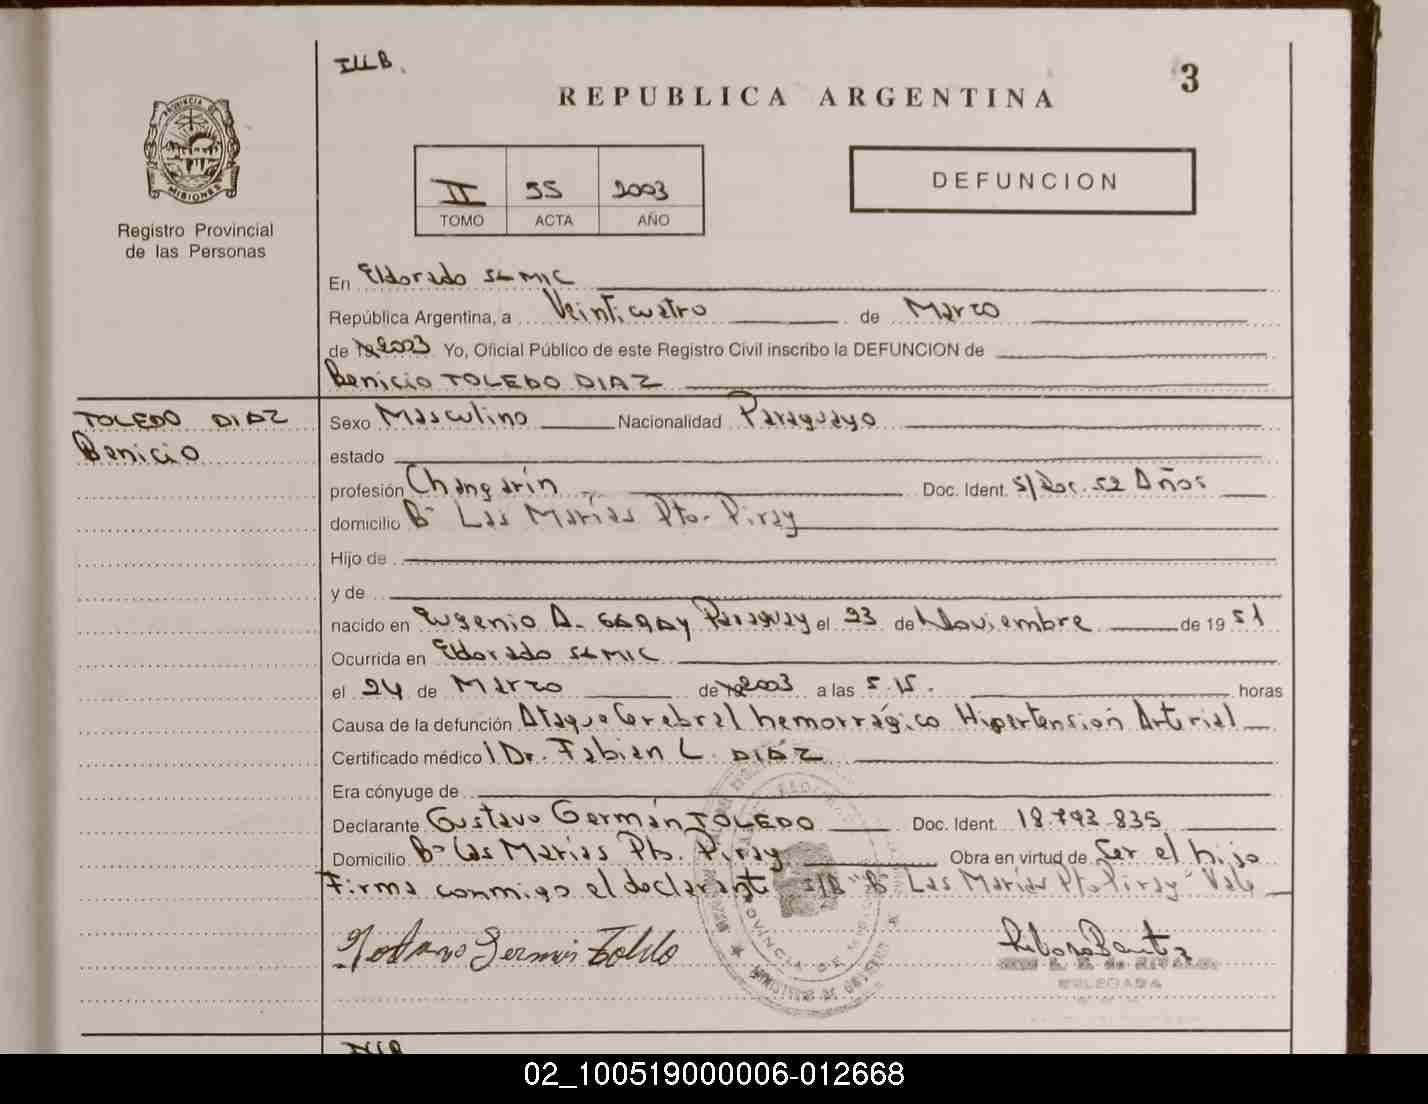 3
REPUBLICA ARGENTINA
PROVINCIA DE
MISIONES
Registro Provincial
de las Personas
II 55 2003
TOMO ACTA AÑO
DEFUNCION
En Eldorado
República Argentina, a Veinticuatro de Marzo
de 19 2003 Yo, Oficial Público de este Registro Civil inscribo la DEFUNCION de
Benicio TOLEDO DIAZ
TOLEDO DIAZ
Benicio
Sexo Masculino Nacionalidad Paraguayo
estado
profesión Changarín Doc. Ident. S/Doc. 52 Años
domicilio Bº Las Marías Pto. Piray
Hijo de
y de
nacido en Eugenio A. GARAY Paraguay el 23 de Noviembre de 1951
Ocurrida en Eldorado
el 24 de Marzo de 19 2003 a las 5.15. horas
Causa de la defunción Ataque Cerebral hemorrágico Hipertensión Arterial
Certificado médico Dr. Fabian C. DIÁZ
Era cónyuge de
Declarante Gustavo Germán TOLEDO Doc. Ident. 18.792.835
Domicilio Bº Las Marías Pto. Piray Obra en virtud de Ser el hijo
Firma conmigo el declarante S/R "Bº Las Marías Pto Piray" Vale
DELEGADA
02_100519000006-012668